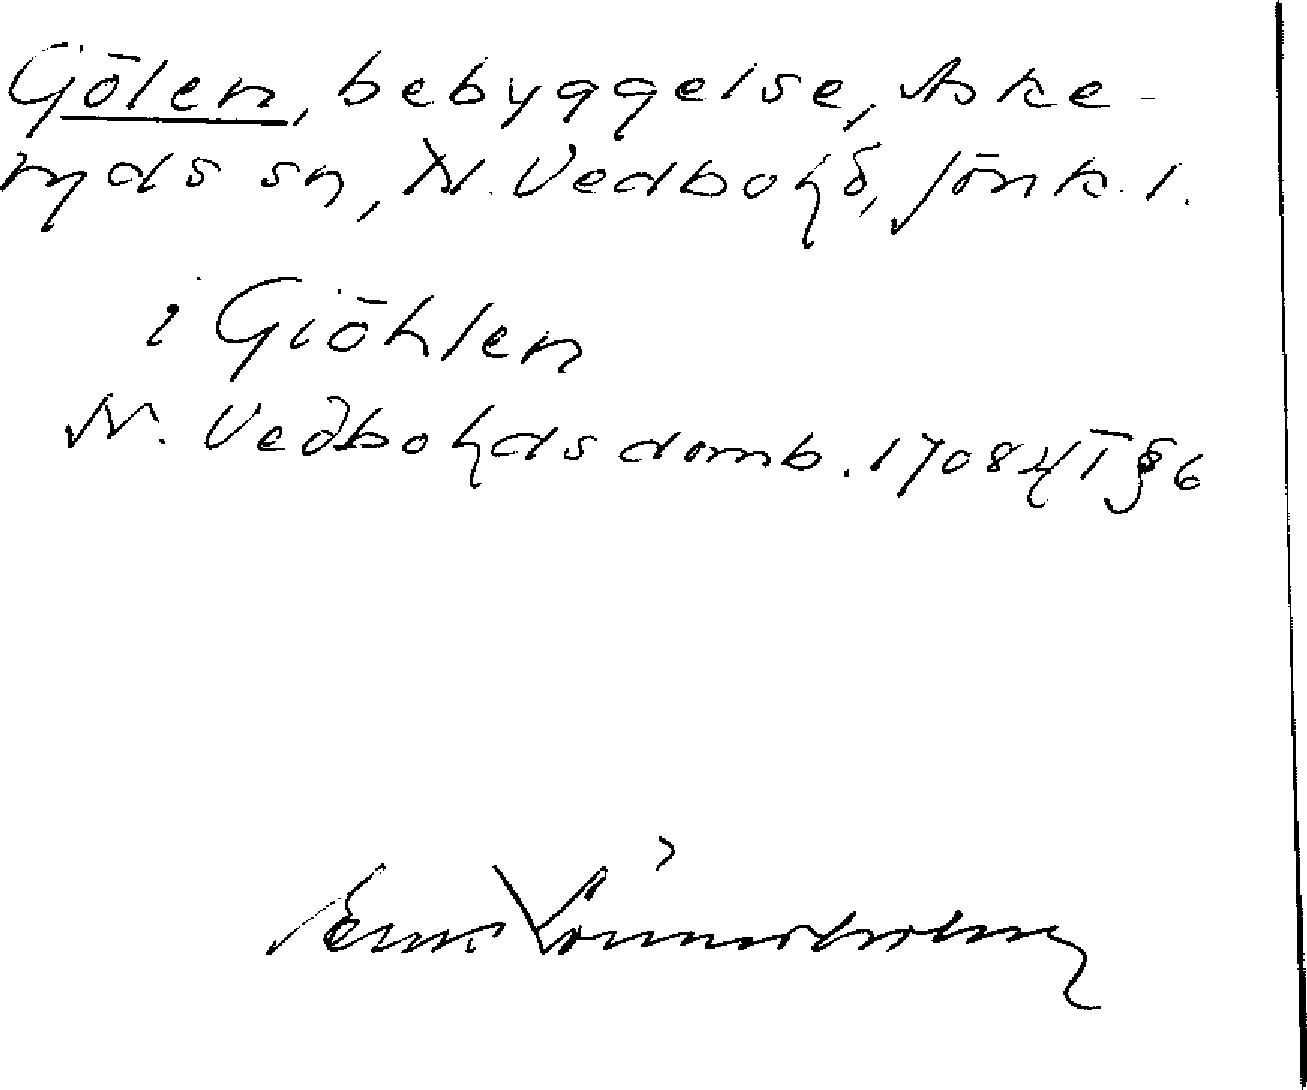 Gölen, bebyggelse, Aske-
ryds sn, N. Vedbo hd, Jönk. l.
i Giöhlen
N. Vedbo hds domb. 1708 ht § 6